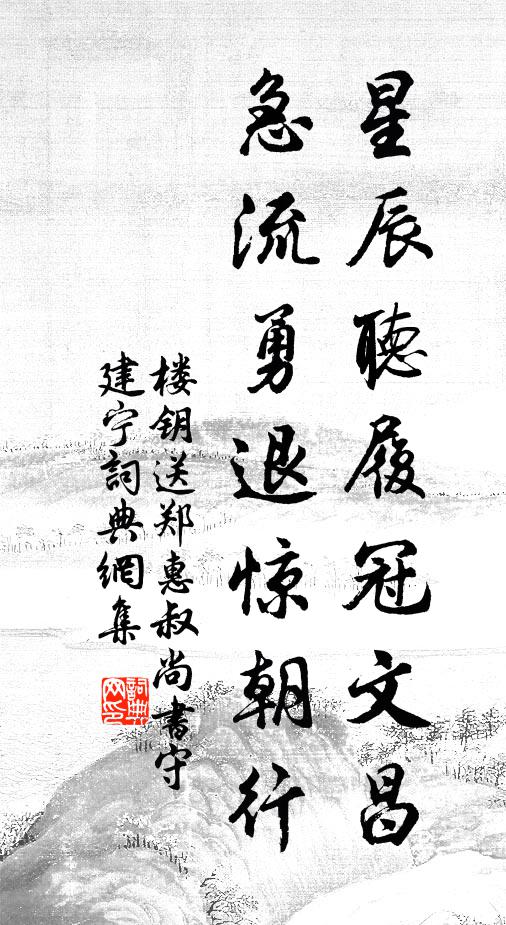 星辰聽履冠文昌
急流勇退惊朝行
楼钥送郑惠叔尚書守
建宁詞典網集
詞典
网印